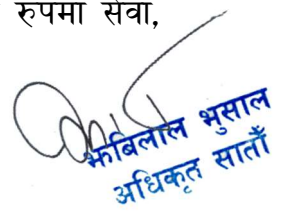 रुपमा सेवा,
झबिलाल भुसाल
अधिकृत सातौँ